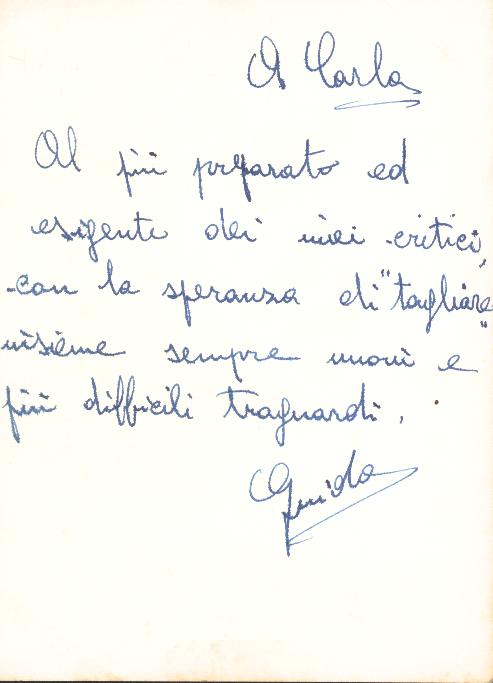 A Carla
Al più preparato ed
esigente dei miei critici,
con la speranza di "tagliare"
insieme sempre nuovi e
più difficili traguardi.
Guido